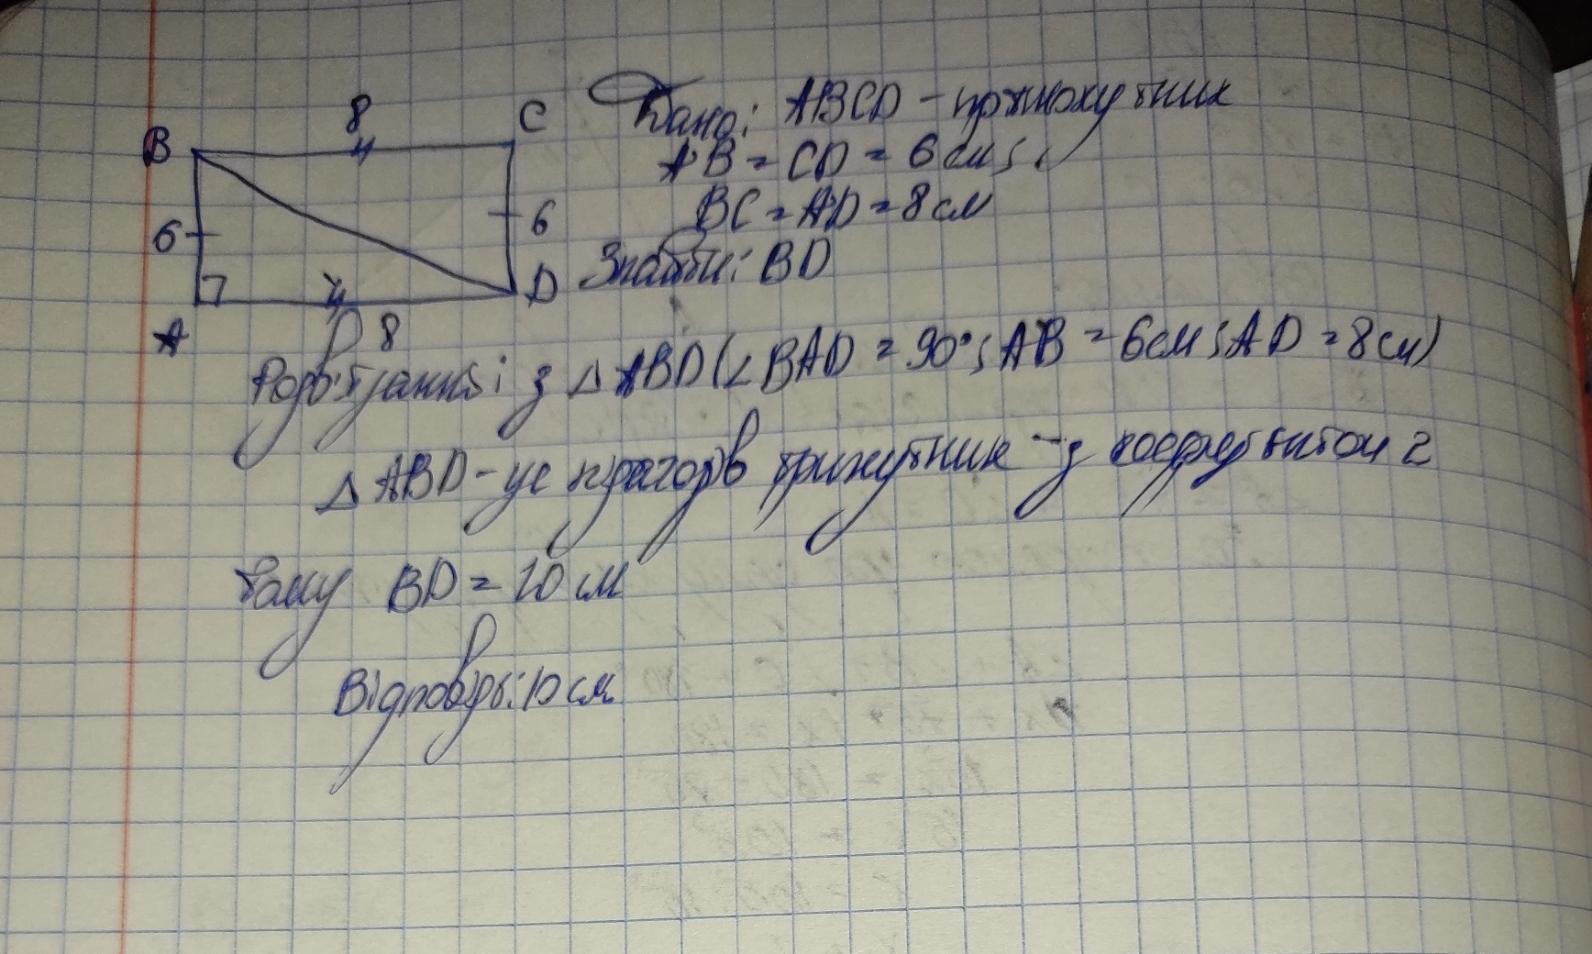 8
B
C
Дано: ABCD - прямокутник
AB = CD = 6 см;
BC = AD = 8 см
6
6
Знайти: BD
D
A
8
Розв'язання: з △ABD (∠BAD = 90°; AB = 6см; AD = 8см)
△ABD - це піфагорів трикутник - з коефіцієнтом 2
тому BD = 10 см
Відповідь: 10 см